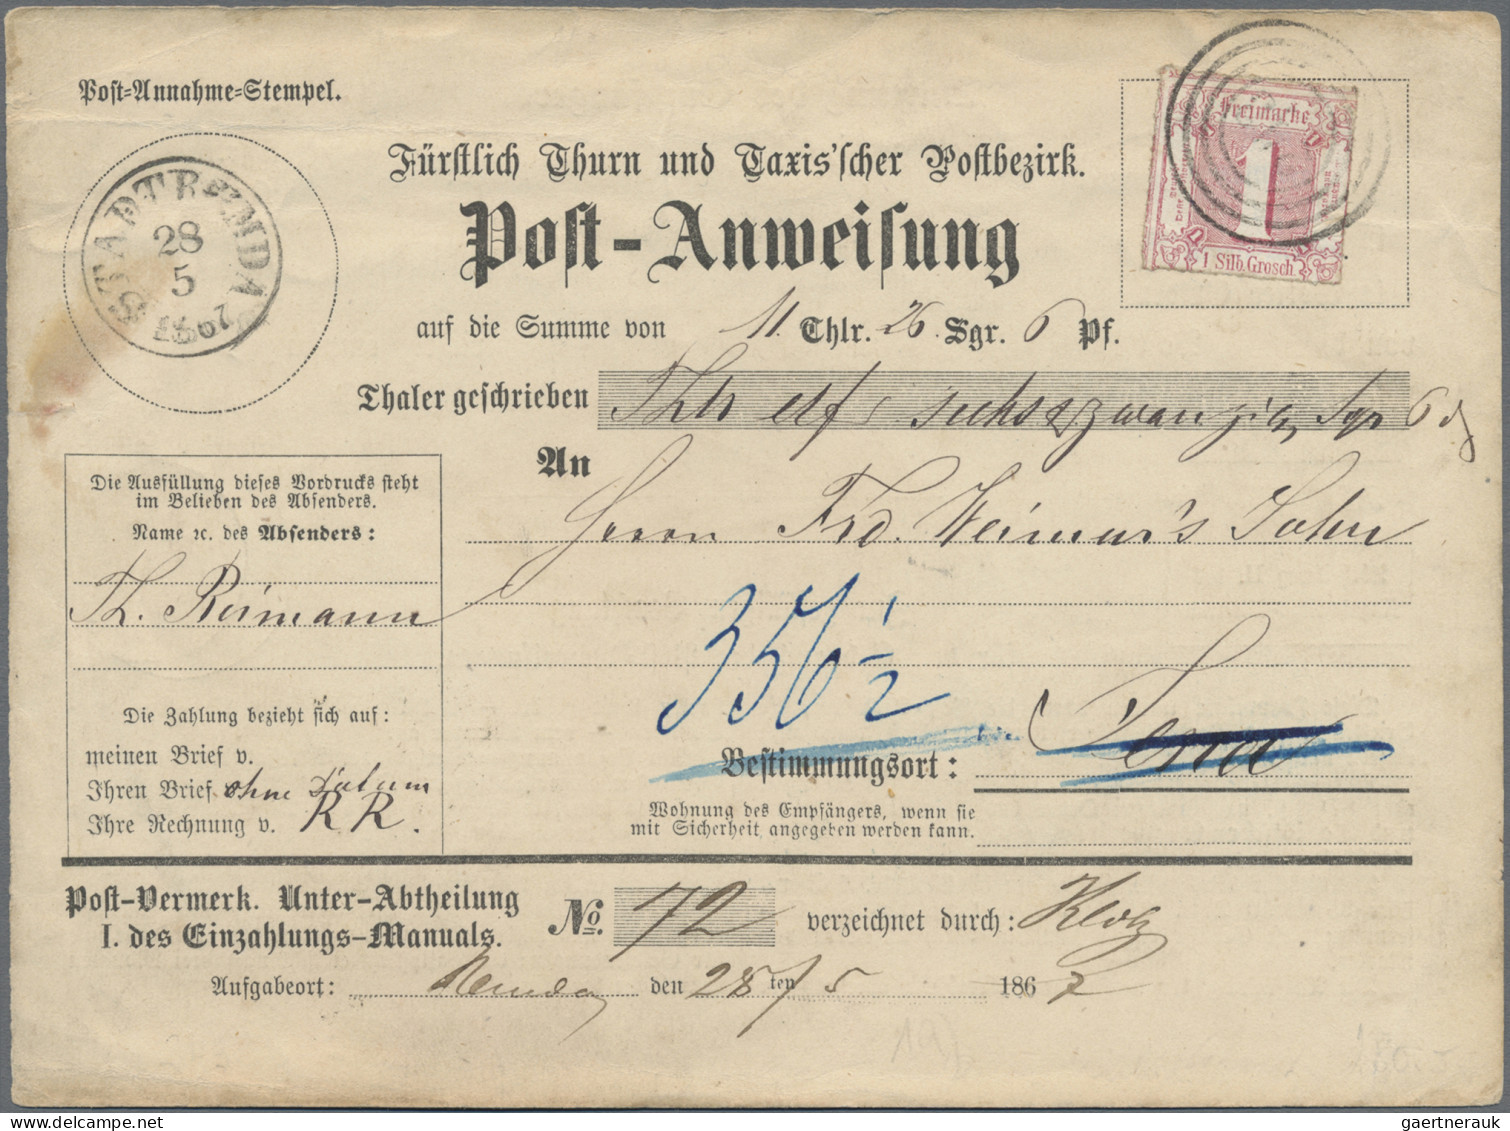 Post-Annahme-Stempel.
STADTREMDA
28
5
1867
Freimarke
1
1 Silb. Grosch.
Fürstlich Thurn und Taxis'scher Postbezirk.
Post-Anweisung
auf die Summe von 11. Thlr. 26. Sgr. 6 Pf.
Thaler geschrieben Thlr elf sechs & zwanzig Sgr 6 d
An
Herrn Frd. Weimar's Sohn
Die Ausfüllung dieses Vordrucks steht
im Belieben des Absenders.
Name ꝛc. des Absenders:
Th. Reimann
356 1/2
Die Zahlung bezieht sich auf:
meinen Brief v.
Ihren Brief ohne Datum
Ihre Rechnung v. R R.
Bestimmungsort: Jena
Wohnung des Empfängers, wenn sie
mit Sicherheit angegeben werden kann.
Post-Vermerk. Unter-Abtheilung
I. des Einzahlungs-Manuals.
No. 72 verzeichnet durch: Klotz
Aufgabeort: Remda den 28 ten / 5 1867
gaertnerauk @ delcampe.net